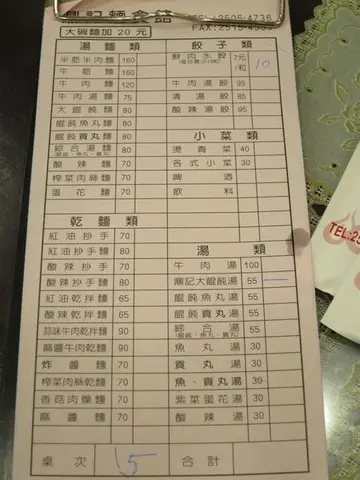 鼎記麵食館 TEL:2505-4736
大碗麵加 20 元
湯麵類
半筋半肉麵 160
牛筋麵 160
牛肉麵 120
牛肉湯麵 75
大餛飩麵 80
餛飩魚丸麵 80
餛飩貢丸麵 80
綜合湯麵 80
酸辣麵 70
榨菜肉絲麵 70
蛋花麵 70
乾麵類
紅油抄手 70
紅油抄手麵 80
酸辣抄手 70
酸辣抄手麵 80
紅油乾拌麵 65
酸辣乾拌麵 65
蒜味牛肉乾麵 90
麻醬牛肉乾麵 90
炸醬麵 70
榨菜肉絲乾麵 70
香菇肉燥麵 70
麻醬麵 70
餃子類
鮮肉水餃 7元/粒 10
牛肉湯餃 95
清湯餃 85
酸辣湯餃 95
小菜類
燙青菜 40
各式小菜 30
啤酒
飲料
湯類
牛肉湯 100
鼎記大餛飩湯 55
餛飩魚丸湯 55
餛飩貢丸湯 55
綜合湯 55
魚丸湯 30
貢丸湯 30
魚、貢丸湯 30
紫菜蛋花湯 30
酸辣湯 30
桌次 15 合計